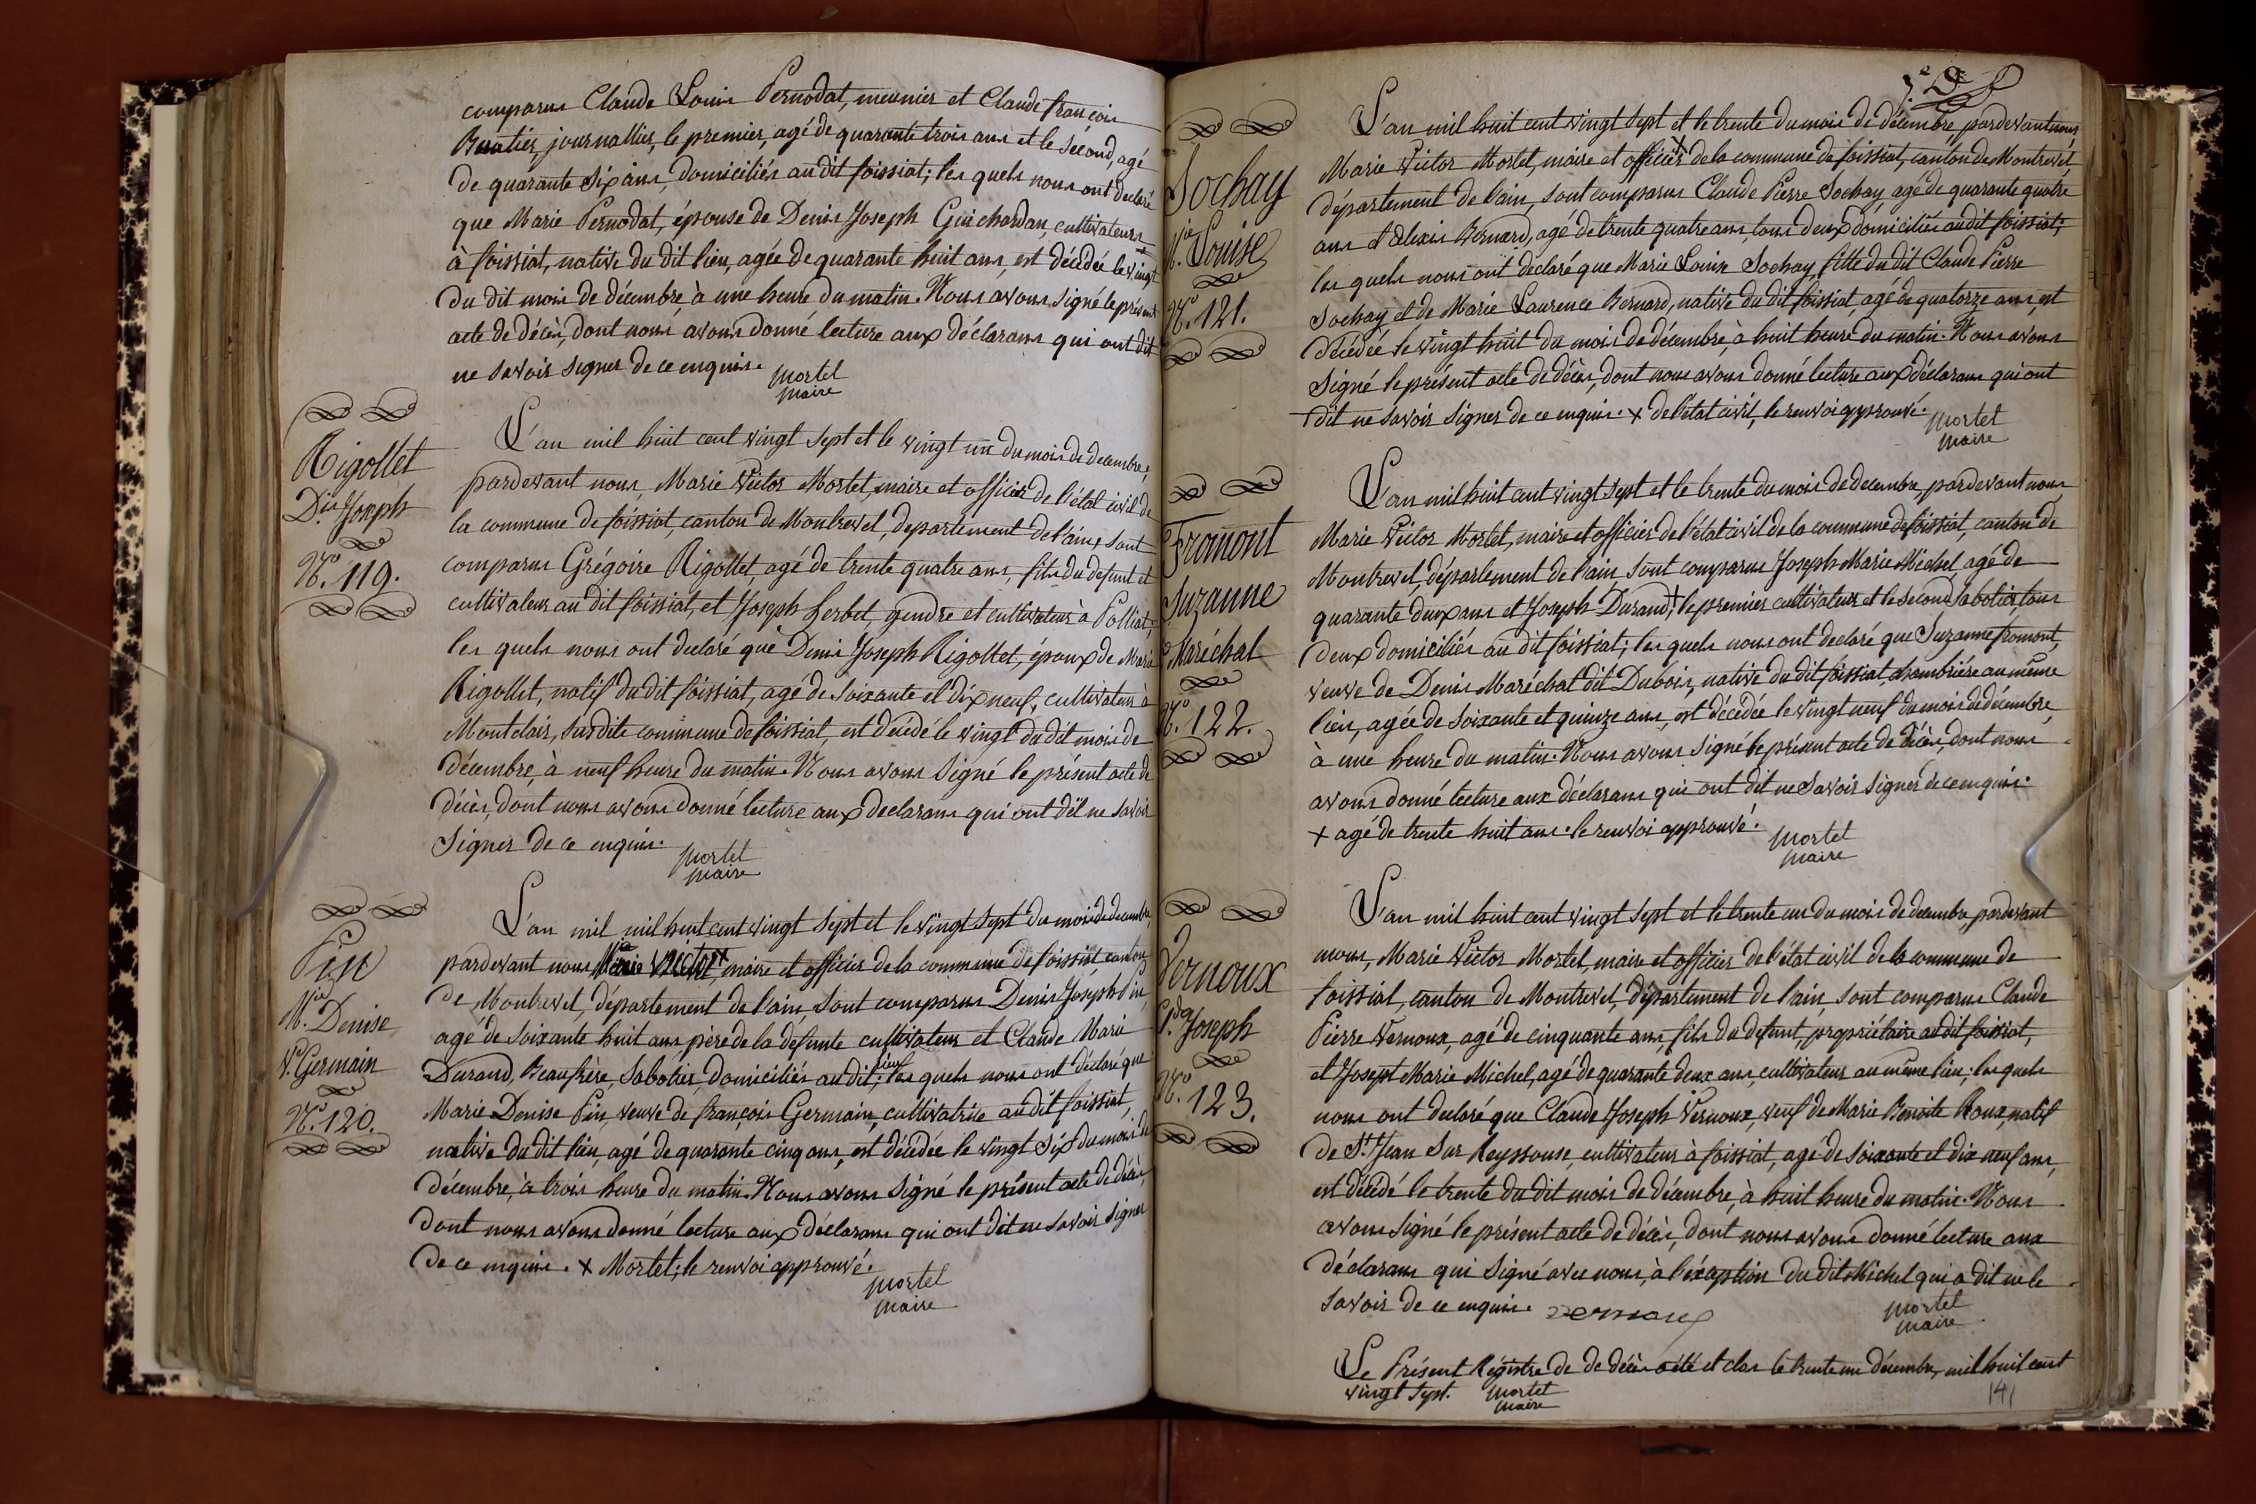 comparus Claude Louis Pernodat, meunier et Claude françois
journallier, le premier, agé de quarante trois ans et le sécond, agé
de quarante six ans, domiciliés au dit foissiat; les quels nous ont declaré
que Marie Pernodat, épouse de Denis Joseph Guichardan, cultivateurs
à foissiat, native du dit lieu, agée de quarante huit ans, est décédée le vingt
du dit mois de décembre à une heure du matin. Nous avons signé le présent
acte de décès, dont nous avons donné lecture aux déclarans qui ont dit
ne savoir signer de ce enquis.
Mortel
maire
Rigollet
Dis Joseph
N.o 119.
L'an mil huit cent vingt sept et le vingt un du mois de decembre,
pardevant nous, Marie Victor Mortet, maire et officier de l'état civil de
la commune de foissiat, canton de Montrevel, departement de l'ain, sont
comparus Grégoire Rigollet, agé de trente quatre ans, fils du defunt et
cultivateur au dit foissiat, et Joseph Lerbet, gendre et cultivateur à Polliat;
les quels nous ont declaré que Denis Joseph Rigollet, époux de Marie
Rigollet, natif du dit foissiat, agé de soixante et dix neuf, cultivateur à
Montclair, susdite commune de foissiat, est décédé le vingt du dit mois de
décembre, à neuf heure du matin. Nous avons signé le présent acte de
décès, dont nous avons donné lecture aux declarans qui ont dit ne savoir
signer de ce enquis.
Mortel
maire
Pin
M.ie Denise
V.e Germain
N.o 120.
L'an mil mil huit cent vingt sept et le vingt sept du mois de decembre,
pardevant nous Marie Victor+, maire et officier de la commune de foissiat, canton
de Montrevel, département de l'ain, sont comparus Denis Joseph Pin,
agé de soixante huit ans père de la defunte cultivateur et Claude Marie
Durand, Beaufrère, Sabotier, domiciliés au dit lieu; les quels nous ont déclaré que
Marie Denise Pin, veuve de françois Germain, cultivatrice au dit foissiat,
native du dit lieu, agé de quarante cinq ans, est décédée le vingt six du mois de
décembre, à trois heure du matin. Nous avons signé le présent acte de décès,
dont nous avons donné lecture aux déclarans qui ont dit ne savoir signer
de ce enquis. + Mortet; le renvoi approuvé.
Mortel
maire
Sochay
M.ie Louise
N.o 121.
L'an mil huit cent vingt sept et le trente du mois de décembre, pardevant nous,
Marie Victor Mortet, maire et officier + de la commune de foissiat, canton de Montrevel
département de l'ain, sont comparus Claude Pierre Sochay, agé de quarante quatre
ans et Alexis Bernard, agé de trente quatre ans, tous deux domiciliés au dit foissiat;
les quels nous ont déclaré que Marie Louise Sochay, fille du dit Claude Pierre
Sochay et de Marie Laurence Bernard, native du dit foissiat, agé de quatorze ans, est
décédée le vingt huit du mois de décembre, à huit heure du matin. Nous avons
signé le présent acte de décès, dont nous avons donné lecture aux déclarans qui ont
dit ne savoir signer de ce enquis. + de l'état civil, le renvoi approuvé.
Mortet
maire
Fromont
Suzanne
Maréchal
N.o 122.
L'an mil huit cent vingt sept et le trente du mois de decembre, pardevant nous
Marie Victor Mortet, maire et officier de l'état civil de la commune de foissiat, canton de
Montrevel, département de l'ain, sont comparus Joseph Marie Michel agé de
quarante deux ans et Joseph Durand,+ le premier cultivateur et le second Sabotier, tous
deux domiciliés au dit foissiat; les quels nous ont declaré que Suzanne fromont,
veuve de Denis Maréchal dit Dubois, native du dit foissiat, chambrière au même
lieu, agée de soixante et quinze ans, est décédée le vingt neuf du mois de décembre,
à une heure du matin. Nous avons signé le présent acte de décès, dont nous
avons donné lecture aux déclarans qui ont dit ne savoir signer de ce enquis.
+ agé de trente huit ans. le renvoi approuvé.
Mortet
maire
Vernoux
C.de Joseph
N.o 123.
L'an mil huit cent vingt sept et le trente un du mois de decembre, pardevant
nous, Marie Victor Mortet, maire et officier de l'état civil de la commune de
foissiat, canton de Montrevel, département de l'ain, sont comparus Claude
Pierre Vernoux, agé de cinquante ans, fils du defunt, propriétaire au dit foissiat,
et Joseph Marie Michel, agé de quarante deux ans, cultivateur au même lieu; les quels
nous ont declaré que Claude Joseph Vernoux, veuf de Marie Benoite Roux, natif
de S.t Jean Sur Reyssouse, cultivateur à foissiat, agé de soixante et dix neuf ans,
est décédé le trente du dit mois de décembre, à huit heure du matin. Nous
avons signé le présent acte de décès, dont nous avons donné lecture aux
déclarans qui signé avec nous, à l'éxception du dit Michel qui a dit ne le
savoir de ce enquis.
vernoux
Mortel
maire
Le Présent Régistre de de décès a été et clos le trente un décembre mil huit cent
vingt sept.
Mortet
maire
141